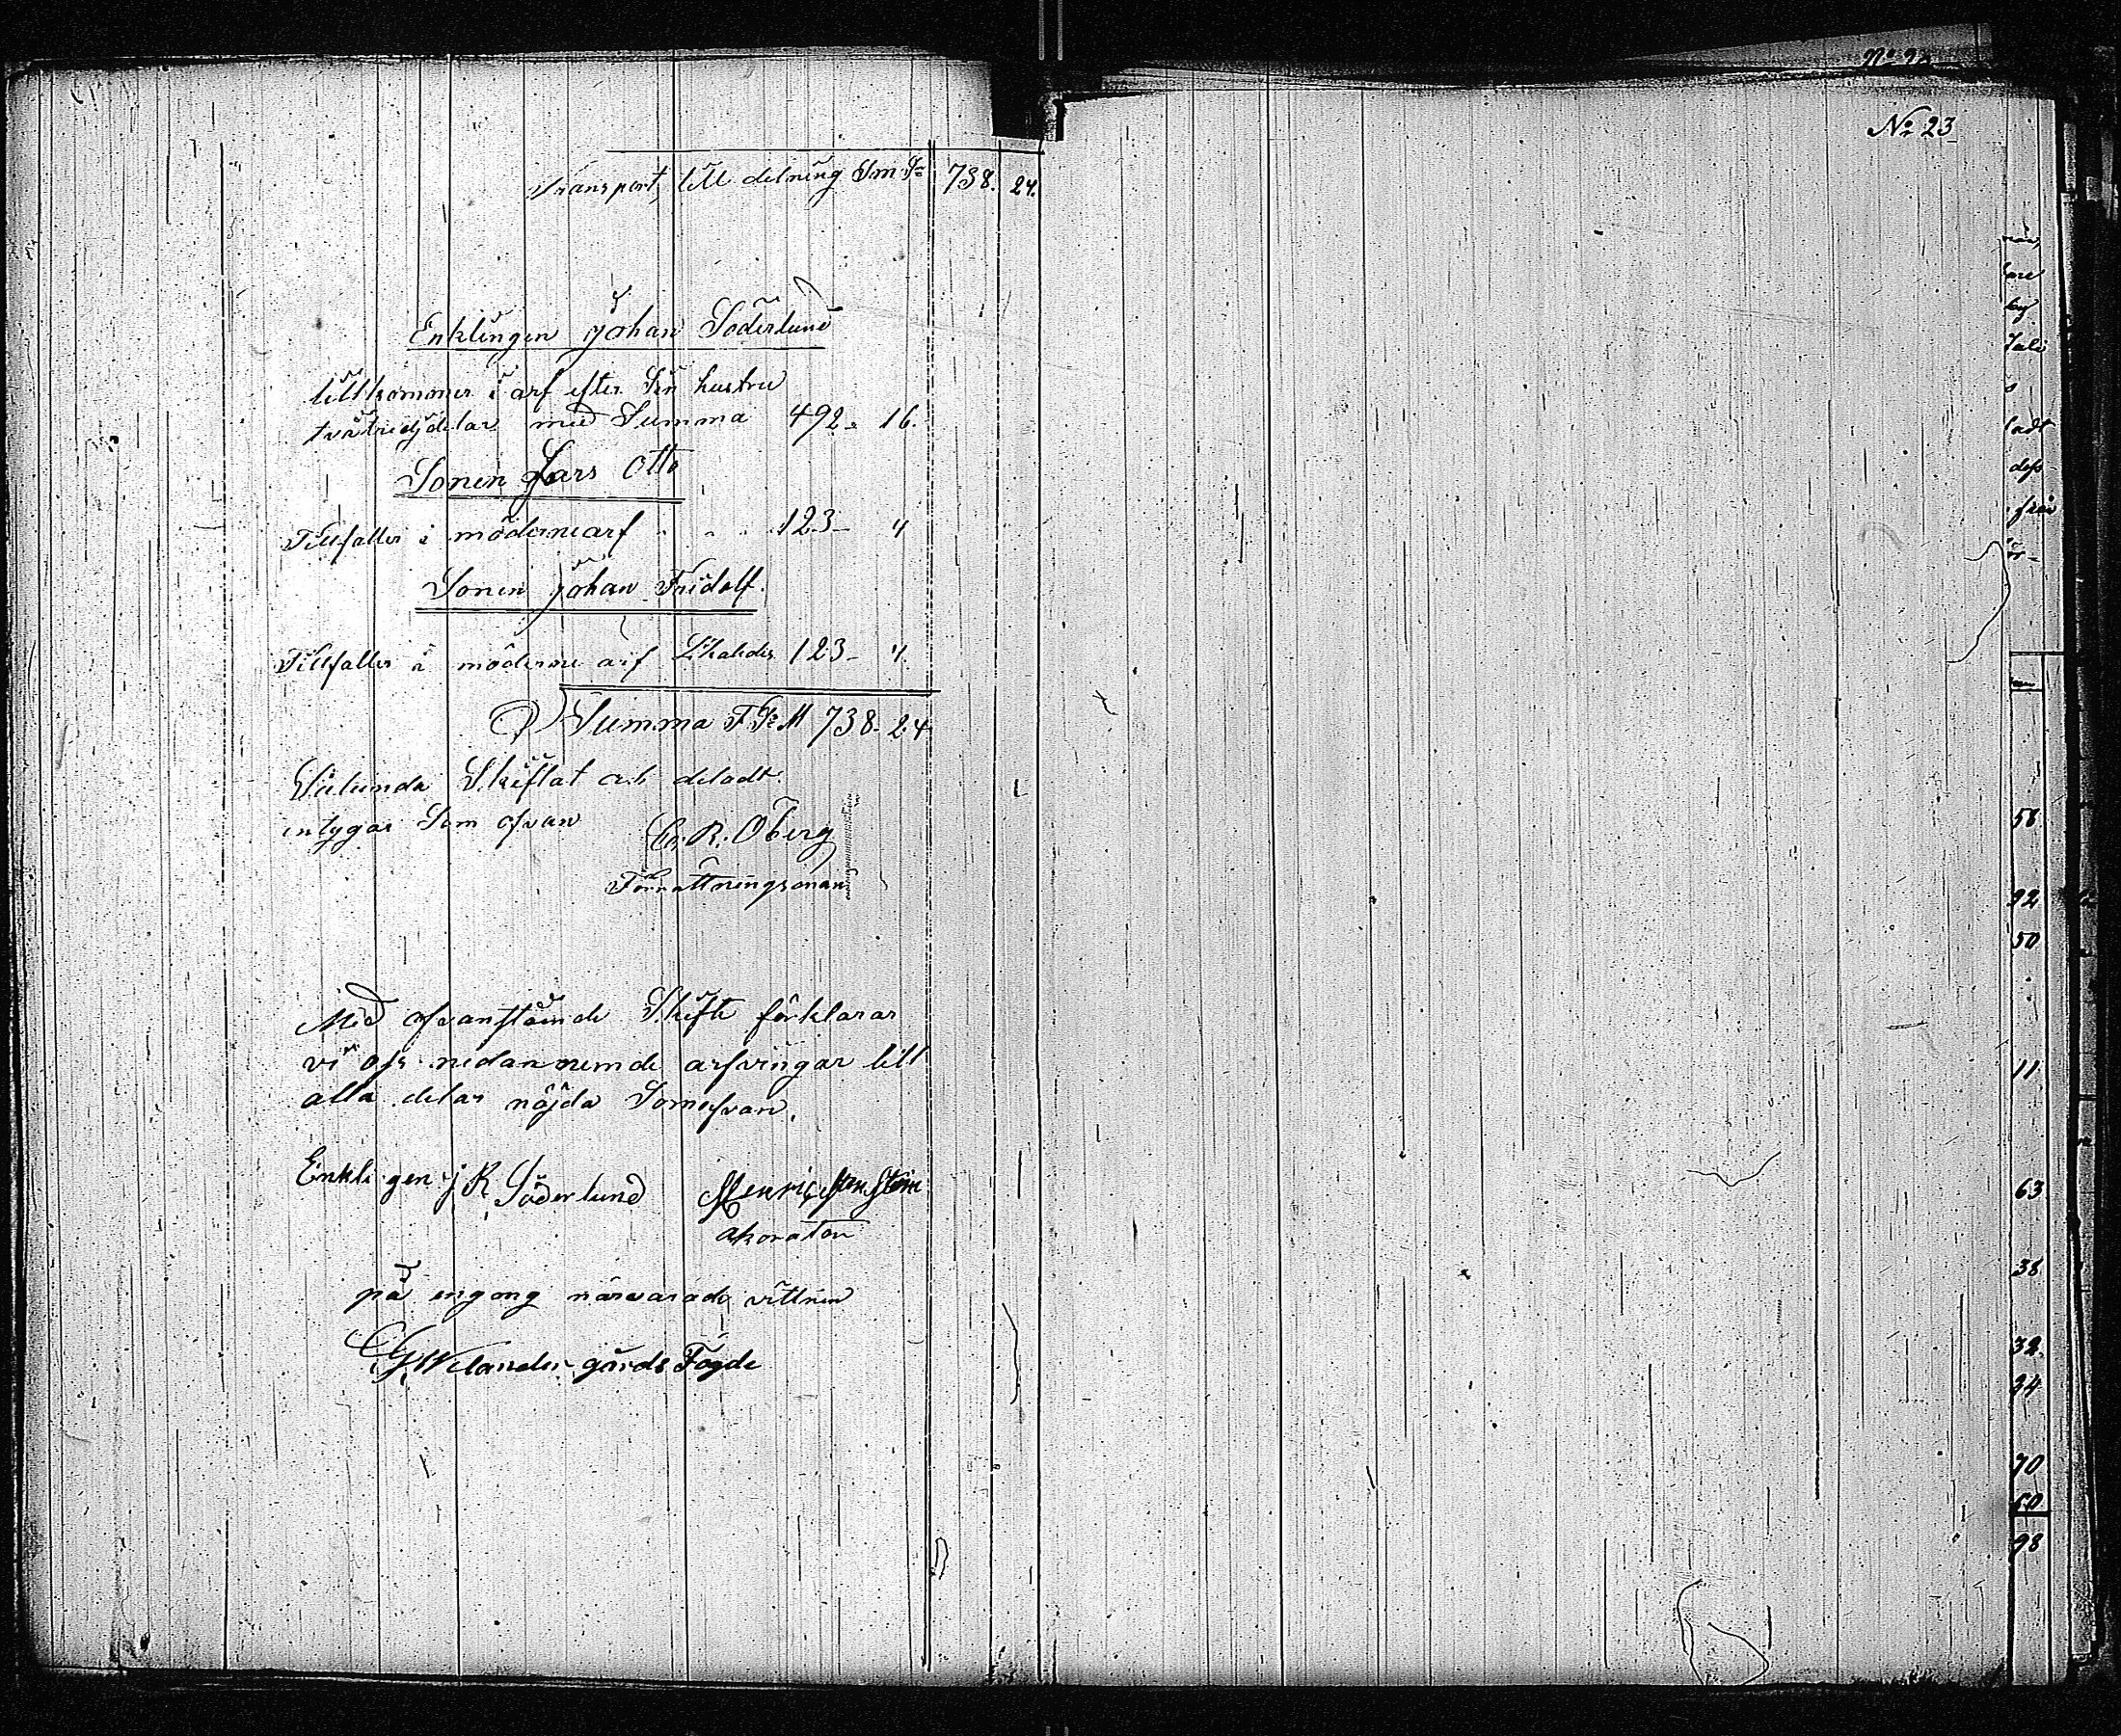 Transport, till delning Sm Fr 738. 24.
Enklingen Johan Söderlund
tillkommer i arf efter Sin hustru
tvåtridjdelar med Summa 492. 16.
Sonen Lars Otto
Tillfaller i möderne arf " " " 123 – 4
Sonen Johan Fridolf.
Tillfaller i möderne arf Likaledes 123 – 4.
Summa F. M 738. 24
Sålunda Skiftat och deladt.
intygar Som ofvan
C. R. Öberg
Förrättningsman
Med ofvanstående Skifte förklarar
vi oss nedannemde arfvingar till
alla delar nöjda Somofvan.
Enkligen J R Söderlund
på engong närvarade vittnen
gårds Fogde
No 23
58
92
50
11
63
38
32.
34
70
50
98